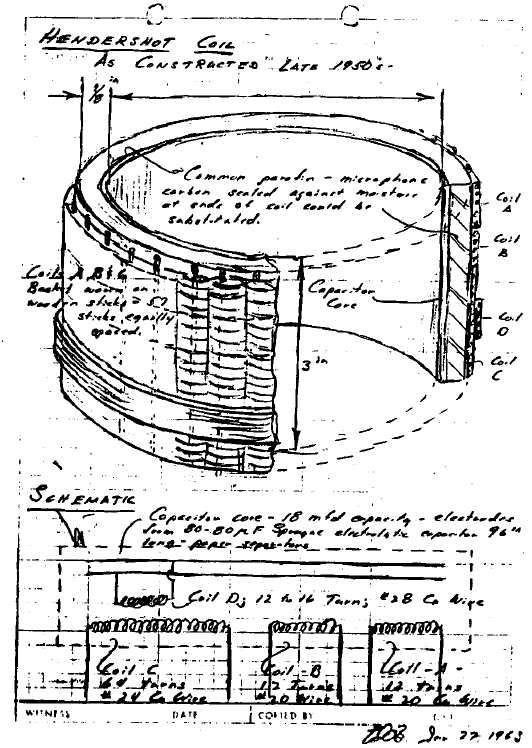 HENDERSHOT COIL
AS CONSTRUCTED LATE 1950's -
Common parafin - microphone
carbon sealed against moisture
at ends of coil could be
substituted.
Coil
A
Coil
B
Coils A, B & C
Basket wound on
wooden sticks = 57
sticks equally
spaced.
Capacitor
Core
Coil
D
3 in
Coil
C
SCHEMATIC
Capacitor core - 18 mfd capacity - electrodes
from 80-80 µF Sprague electrolytic capacitor 96"
long - paper separators
Coil D; 12 to 16 Turns; #28 Cu Wire
Coil - C
64 turns
# 24 Cu Wire
Coil - B
12 turns
# 20 Wire
Coil - A -
12 turns
# 20 Cu Wire
WITNESS
DATE
COPIED BY
Jan 27 1963